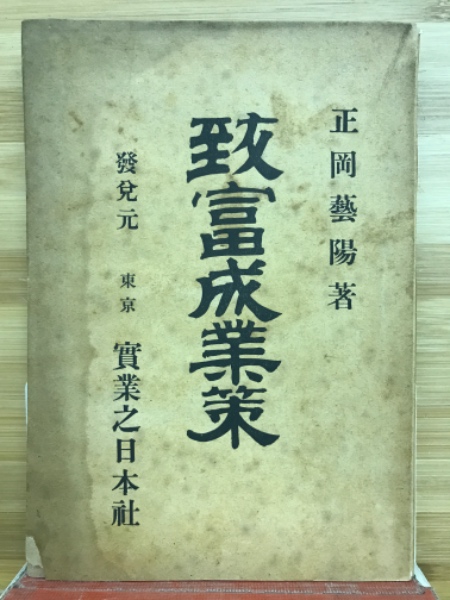 正岡藝陽著
致富成業策
發兌元 東京 實業之日本社